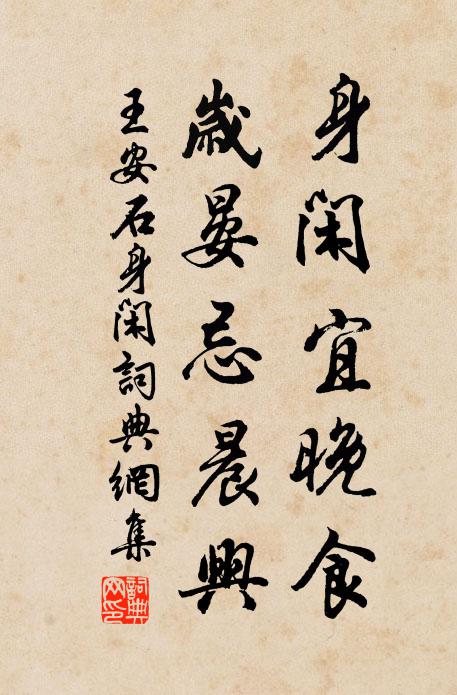 身閑宜晚食
歲晏忌晨興
王安石身閑詞典網集
詞典网印